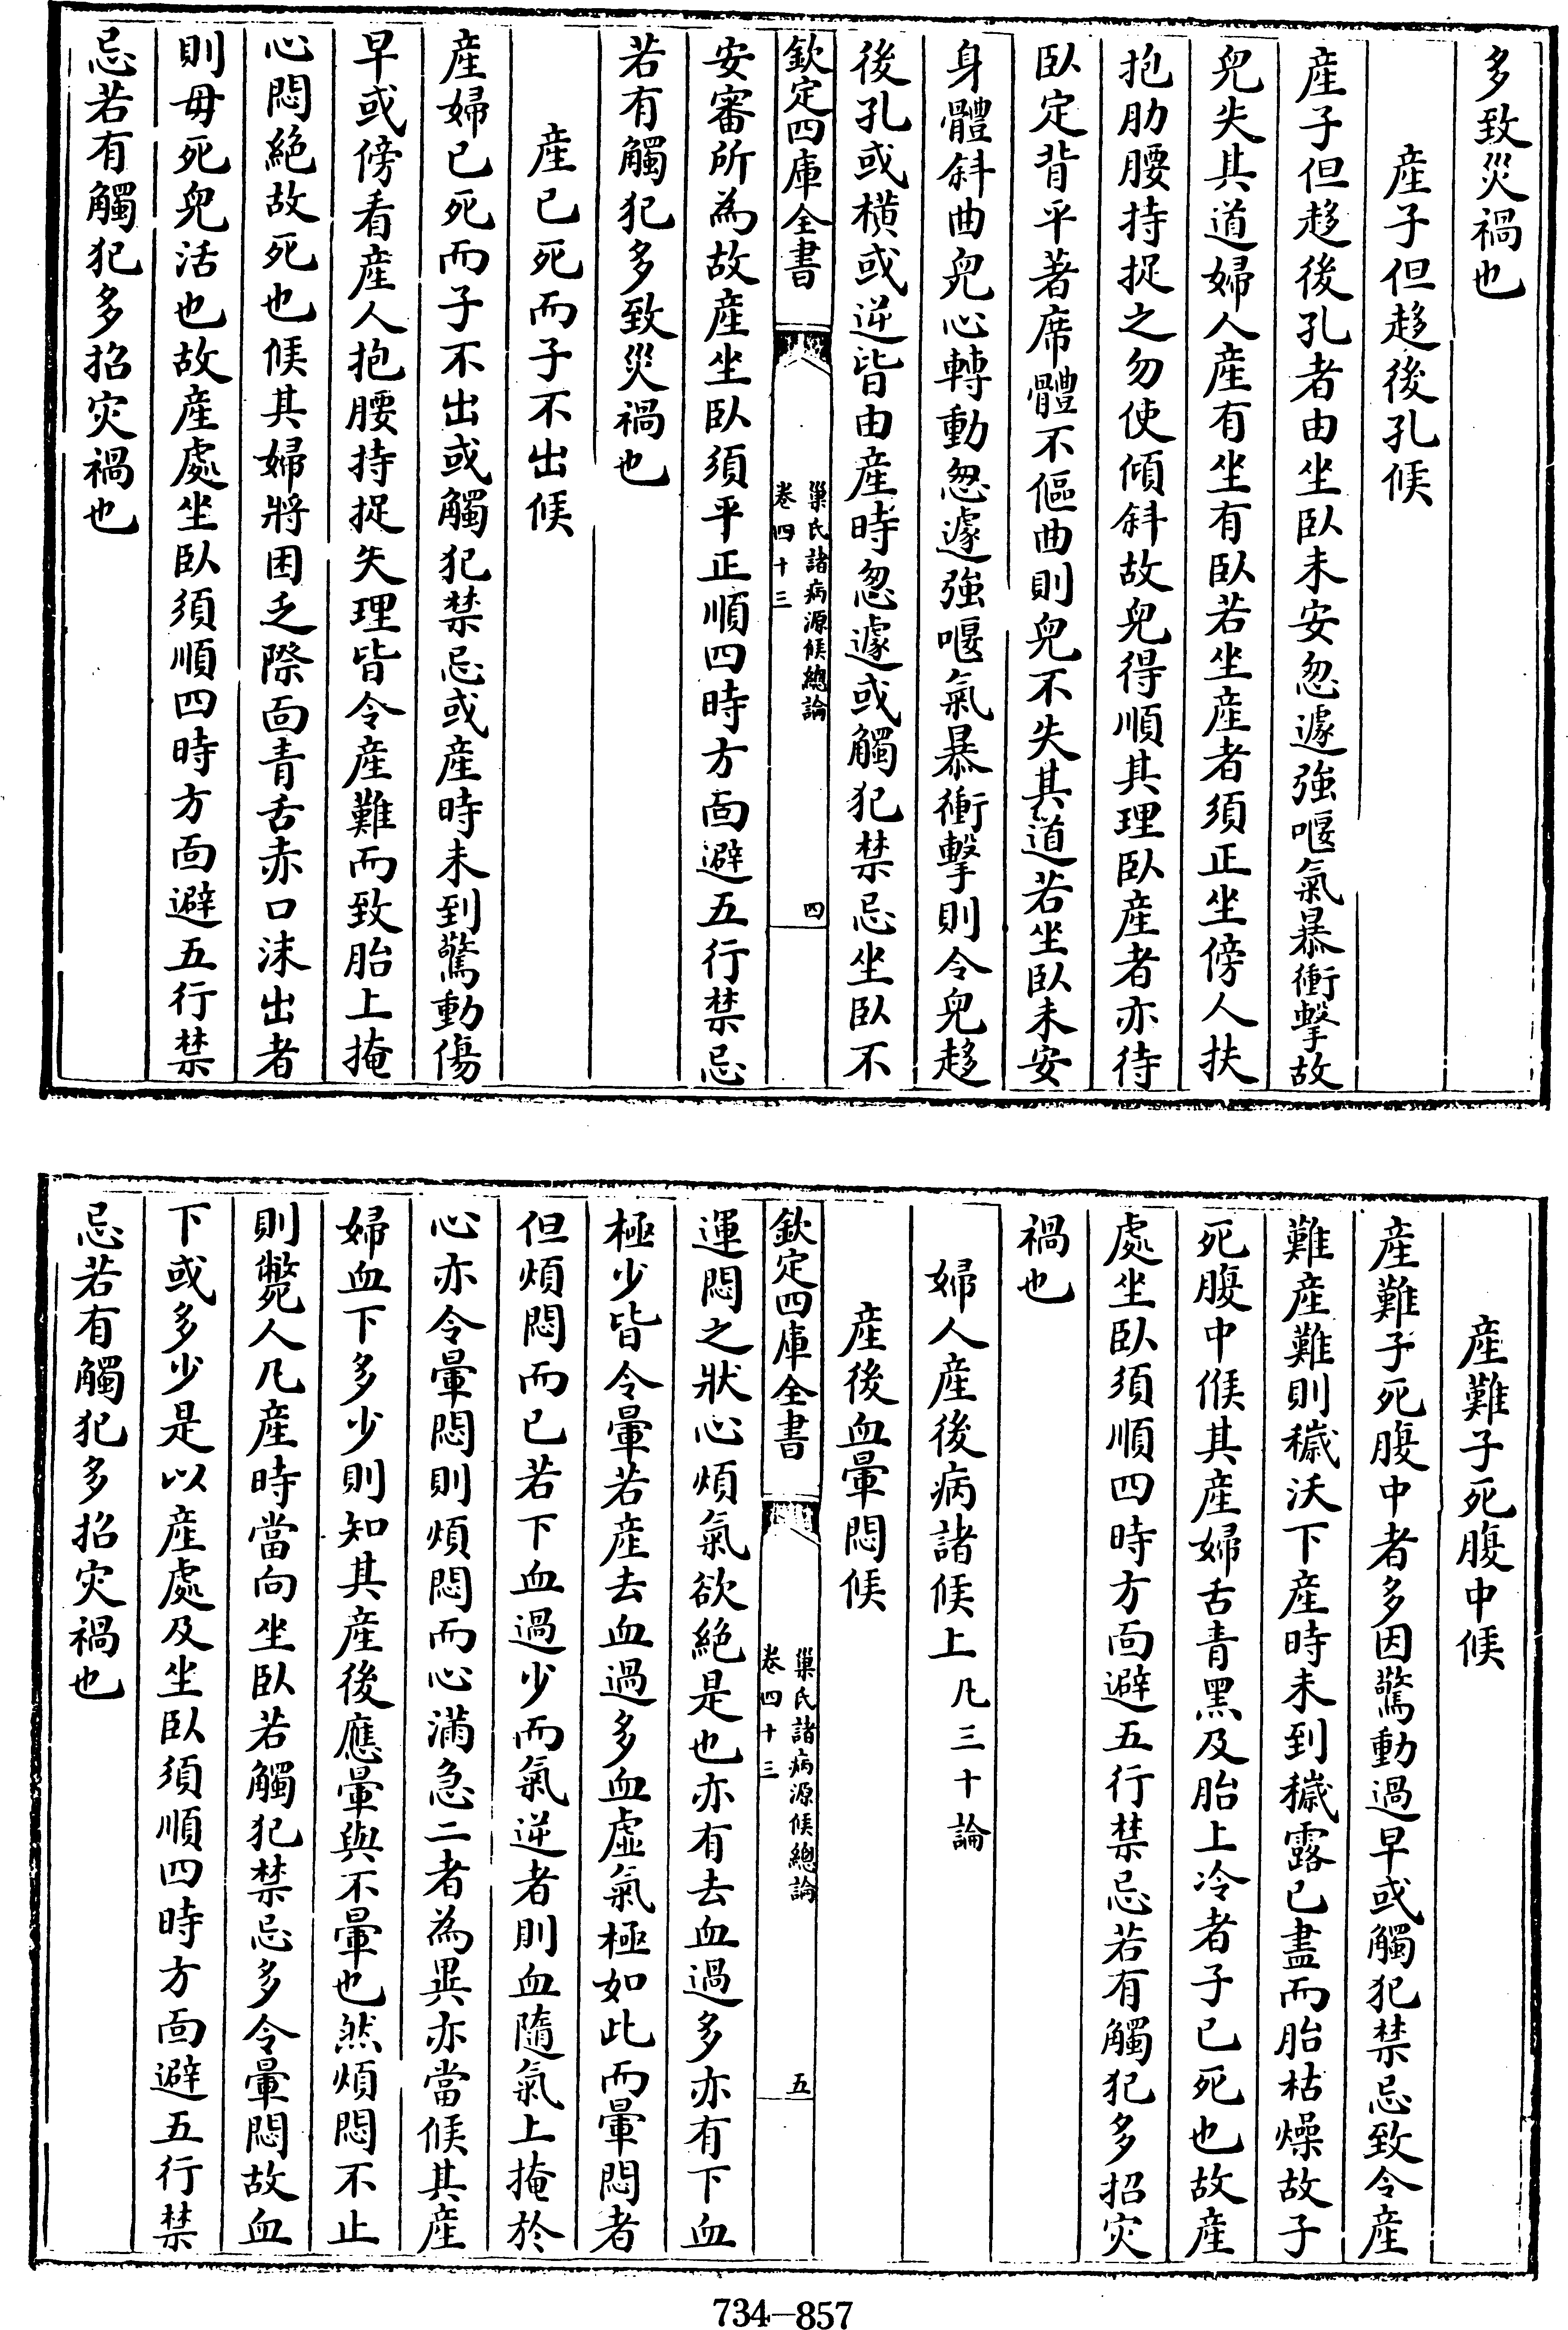 多致災禍也
產子但趍後孔候
產子但趍後孔者由坐臥未安忽遽強喔氣暴衝擊故
兒失其道婦人產有坐有臥若坐產者須正坐傍人扶
抱肋腰持捉之勿使傾斜故兒得順其理臥產者亦待
臥定背平著席體不傴曲則兒不失其道若坐臥未安
身體斜曲兒心轉動怱遽強喔氣暴衝擊則令兒趍
後孔或橫或逆皆由產時忽遽或觸犯禁忌坐臥不
欽定四庫全書
巢氏諸病源候總論
卷四十三
四
安審所為故產坐臥須平正順四時方面避五行禁忌
若有觸犯多致災禍也
產已死而子不出候
產婦已死而子不出或觸犯禁忌或產時未到驚動傷
早或傍看產人抱腰持捉失理皆令產難而致胎上掩
心悶絕故死也候其婦將困乏際面青舌赤口沫出者
則母死兒活也故產處坐臥須順四時方面避五行禁
忌若有觸犯多招灾禍也
產難子死腹中候
產難子死腹中者多因驚動過早或觸犯禁忌致令產
難產難則穢沃下產時未到穢露已盡而胎枯燥故子
死腹中候其產婦舌青黑及胎上冷者子已死也故產
處坐臥須順四時方面避五行禁忌若有觸犯多招灾
禍也
婦人產後病諸候上凡三十論
產後血暈悶候
欽定四庫全書
巢氏諸病源候總論
卷四十三
五
運悶之狀心煩氣欲絕是也亦有去血過多亦有下血
極少皆令暈若產去血過多血虛氣極如此而暈悶者
但煩悶而已若下血過少而氣逆者則血隨氣上掩於
心亦令暈悶則煩悶而心滿急二者為異亦當候其產
婦血下多少則知其產後應暈與不暈也然煩悶不止
則斃人凡產時當向坐臥若觸犯禁忌多令暈悶故血
下或多少是以產處及坐臥須順四時方面避五行禁
忌若有觸犯多招灾禍也
734–857